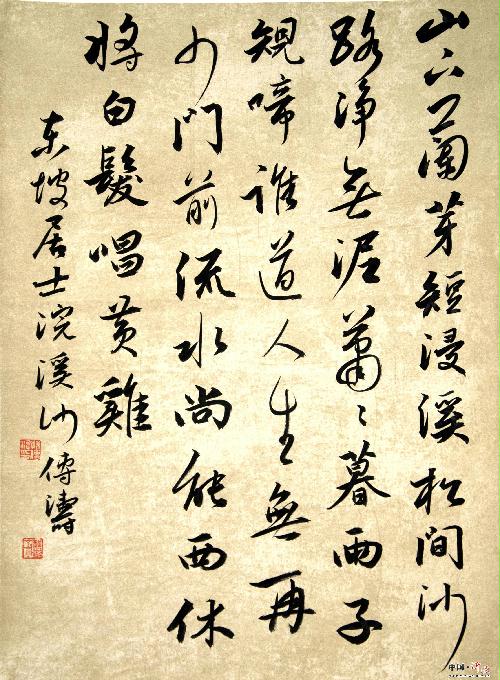 山下蘭芽短浸溪松間沙
路淨無泥蕭〻暮雨子
規啼誰道人生無再
少門前流水尚能西休
將白髮唱黃雞
东坡居士浣溪沙 傅濤
中国